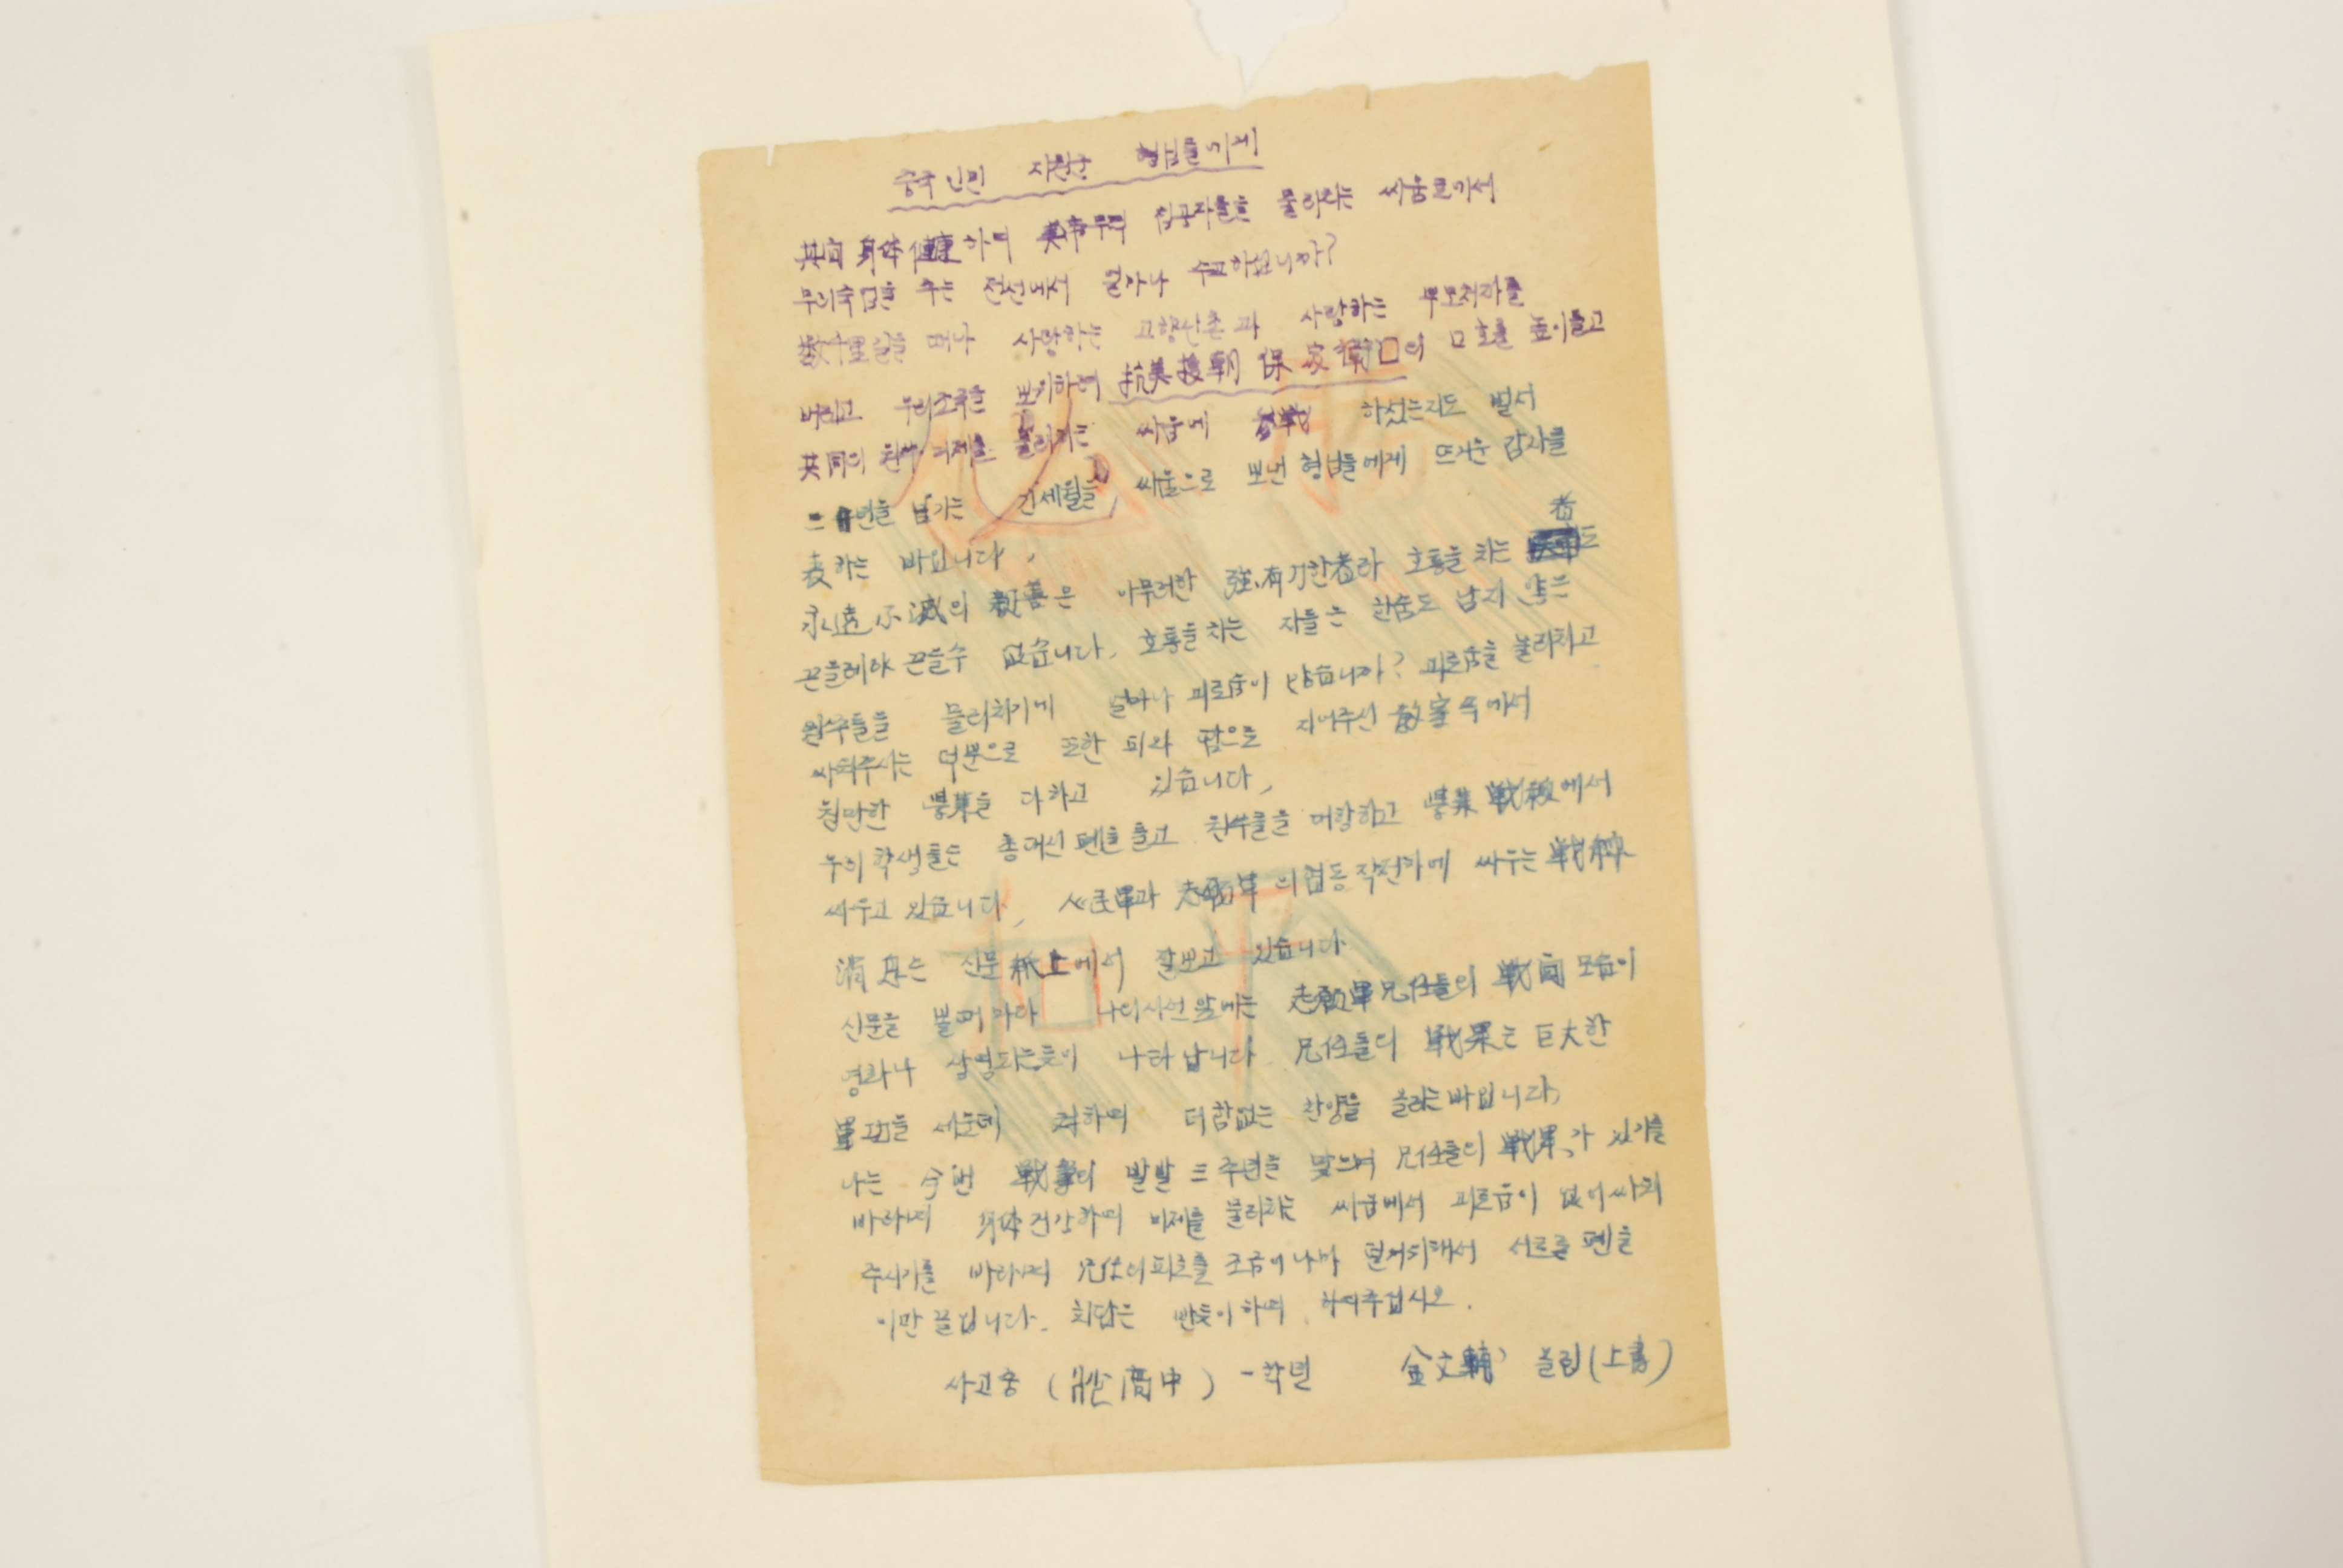 중국 인민 지원군 형님들에게
其间 身体 健康하며 美帝무력 침공자들을 물리치는 싸움터에서
우리숙임을 주는 전선에서 얼마나 수고하십니까?
数千里길을 떠나 사랑하는 고향산촌과 사랑하는 부모처자를
버리고 우리조국을 보위하며 抗美援朝 保家衛囗의 口호를 높이들고
共同의 원쑤 미제를 물리치는 싸움에 参戦 하섰는지도 벌서
二年을 넘기는 긴세월을 싸움으로 보낸 형님들에게 뜨거운 감사를
表하는 바입니다,
永遠不滅의 親善은 아무러한 强有力한者라 호통을 치는 者도
끈을레야 끈을수 없습니다. 호통을치는 자들은 한숨도 남지 않은
원쑤들을 물리치기에 얼마나 피로움이 많습니까? 피로움을 물리치고
싸워주시는 덕분으로 또한 피와 땀으로 지어주신 敎室속에서
원만한 学業을 다하고 있습니다,
우리 학생들은 총대신 펜을 들고 원쑤들을 대항하고 学業 戦線에서
싸우고 있습니다, 人民軍과 志願軍의 협동작전하에 싸우는 戦線
消息은 신문紙上에서 잘보고 있습니다
신문을 볼때마다 나의시선앞에는 志願軍兄任들의 戦闘모습이
영화나 상영되는듯이 나타납니다 兄任들의 戦果는 巨大한
軍功을 세운데 처하여 더함없는 찬양을 올리는바입니다,
나는 今번 戦争의 발발 三주년을 맞으며 兄任들의 戦果가 있기를
바라며 身体건강하며 미제를 물리치는 싸움에서 피로움이 없이싸워
주시기를 바라며 兄任의피로를 조금이나마 덜기위해서 서로를 펜을
이만 끝입니다. 회답은 반듯이하여 하여주십시오.
사고중 ( 高中 ) 一학년 金文輔 올림(上書)
必 勝
和 平